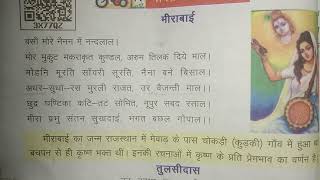 3X77QZ
मीराबाई
बसौ मोरे नैनन में नन्दलाल।
मोर मुकुट मकराकृत कुण्डल, अरुम तिलक दिये भाल।
मोहनि मूरति साँवरी सूरति, नैना बने बिसाल।
अधर-सुधा-रस मुरली राजत, उर वैजन्ती माल।।
छुद्र घण्टिका कटि-तट सोभित, नूपुर सबद रसाल।
मीरा प्रभु संतन सुखदाई, भगत बछल गोपाल।।
मीराबाई का जन्म राजस्थान में मेवाड के पास चोकड़ी (कुड़की) गाँव में हुआ
बचपन से ही कृष्ण भक्त थीं। इनकी रचनाओं में कृष्ण के प्रति प्रेमभाव का वर्णन है।
तुलसीदास